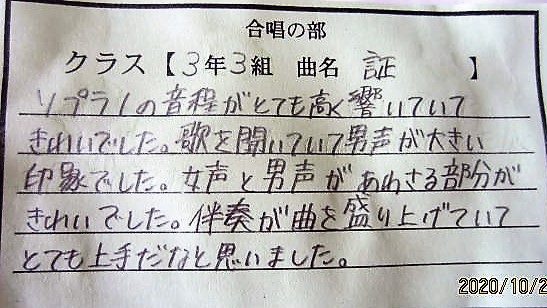 合唱の部
クラス【3年3組 曲名 証 】
ソプラノの音程がとても高く響いていて
きれいでした。歌を聞いていて男声が大きい
印象でした。女声と男声があわさる部分が
きれいでした。伴奏が曲を盛り上げていて
とても上手だなと思いました。
2020/10/2